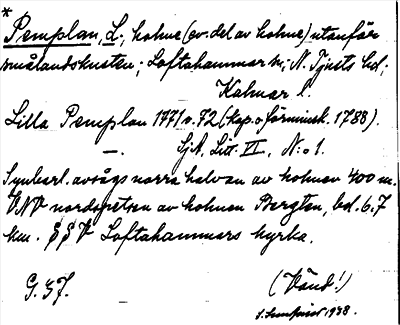 *
Pemplan, L., holme (ev. del av holme) utanför
smålandskusten; Loftahammar sn; N. Tjusts hd;
Kalmar l.
Lilla Pemplan 1771 o. 72 (kop. o förminsk. 1788).
—. SjK, Litt. VI, N:o 1.
Synbarl. avsågs norra halvan av holmen 400 m.
VNV nordspetsen av holmen Bergten, bel. 6.7
km. SSV Loftahammars kyrka.
G. I. F. (Vänd!)
1938.